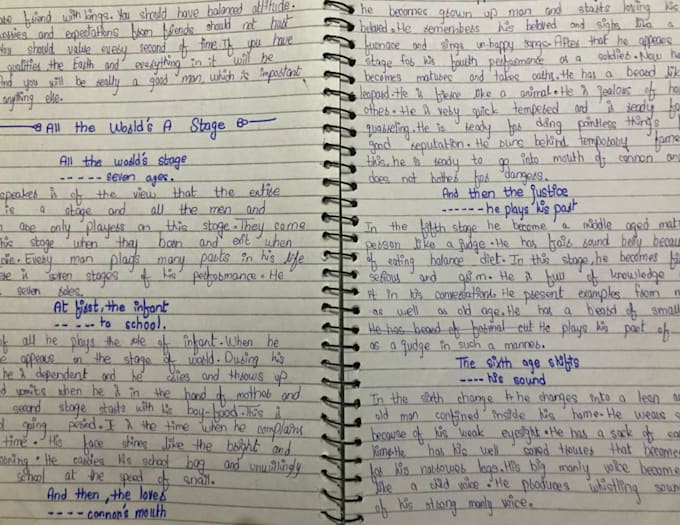 be friend with kings. You should have balanced attitude.
and expectations from friends should not hurt
You should value every second of time. If you have
qualities the Earth and everything in it will be
And you will be really a good man, which is important
anything else.
All the World's A Stage
All the world's stage
----- seven ages.
speaker is of the view that the entire
is a stage and all the men and
are only players on this stage. They come
this stage when they born and exit when
die. Every man plays many parts in his life
is seven stages of his performance. He
seven roles.
At first, the infant
----- to school.
of all he plays the role of infant. When he
appears on the stage of world. During his
he is dependent and he cries and throws up
vomits when he is in the hand of mother and
second stage starts with his boy-hood. This is
going period. It is the time when he complains
time. His face shines like the bright and
morning. He carries his school bag and unwillingly
school at the speed of snail.
And then, the lover
---- cannon's mouth
he becomes grown up man and starts loving his
beloved. He remembers his beloved and sighs like a
furnace and sings un-happy songs. After that he appears
stage for his fourth performance as a soldier. Now he
becomes mature and takes oaths. He has a beard like
leopard. He is fierce like a animal. He is jealous of
other. He is very quick tempered and is ready for
quarreling. He is ready for doing pointless things
good reputation. He runs behind temporary fame
this, he is ready to go into mouth of cannon and
does not bother for dangers.
And then the justice
------ he plays his part
In the fifth stage he become a middle aged
person like a judge. He has fair sound belly
of eating balance diet. In this stage, he becomes
serious and grim. He is full of knowledge
it in his conversations. He present examples from
as well as old age. He has a beard of
He has beard of formal cut He plays his part of
as a judge in such a manner.
The sixth age shifts
---- his sound
In the sixth change he changes into a lean
old man confined inside his home. He wears
because of his weak eyesight. He has a sack of
time. He has his well saved trouses that
for his narrower legs. His big manly voice become
like a child voice. He produces whistling
of his strong manly voice.